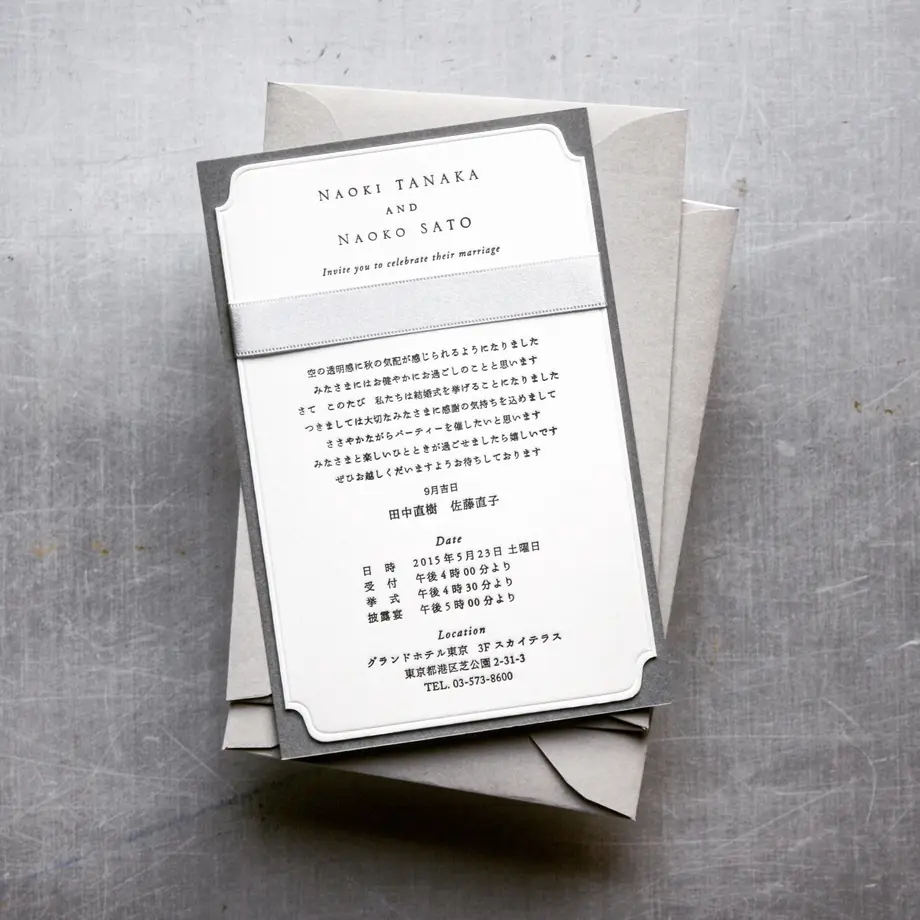 NAOKI TANAKA
AND
NAOKO SATO
Invite you to celebrate their marriage
空の透明感に秋の気配が感じられるようになりました
みなさまにはお健やかにお過ごしのことと思います
さて　このたび　私たちは結婚式を挙げることになりました
つきましては大切なみなさまに感謝の気持ちを込めまして
ささやかながらパーティーを催したいと思います
みなさまと楽しいひとときが過ごせましたら嬉しいです
ぜひお越しくだいますようお待ちしております
9月吉日
田中直樹　佐藤直子
Date
日　時　2015年5月23日 土曜日
受　付　午後4時00分より
挙　式　午後4時30分より
披露宴　午後5時00分より
Location
グランドホテル東京　3F スカイテラス
東京都港区芝公園 2-31-3
TEL. 03-573-8600